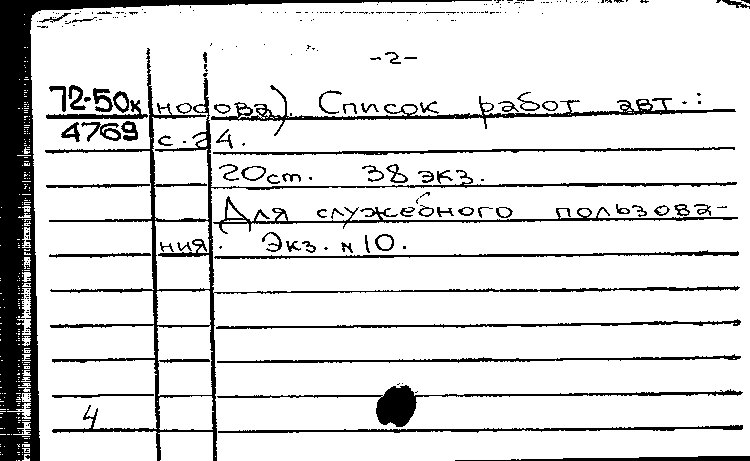 -2-
72-50к носова). Список работ авт.:
4769 с. 24.
20см. 38 экз.
Для служебного пользова-
ния. Экз. №10.
4